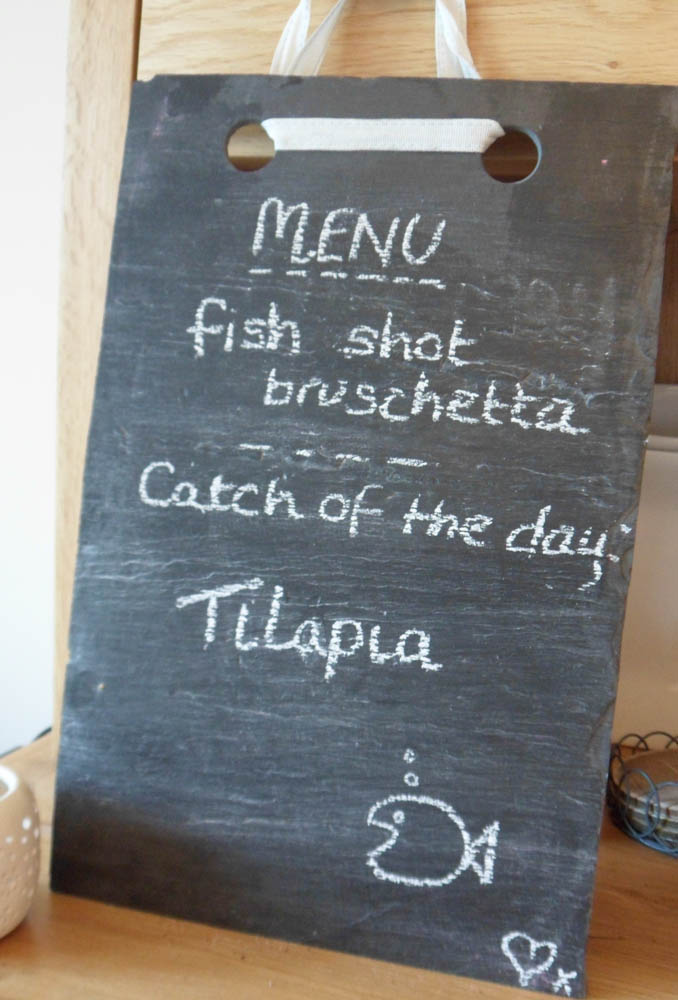 MENU
fish shot
bruschetta
Catch of the day:
Tilapia
x